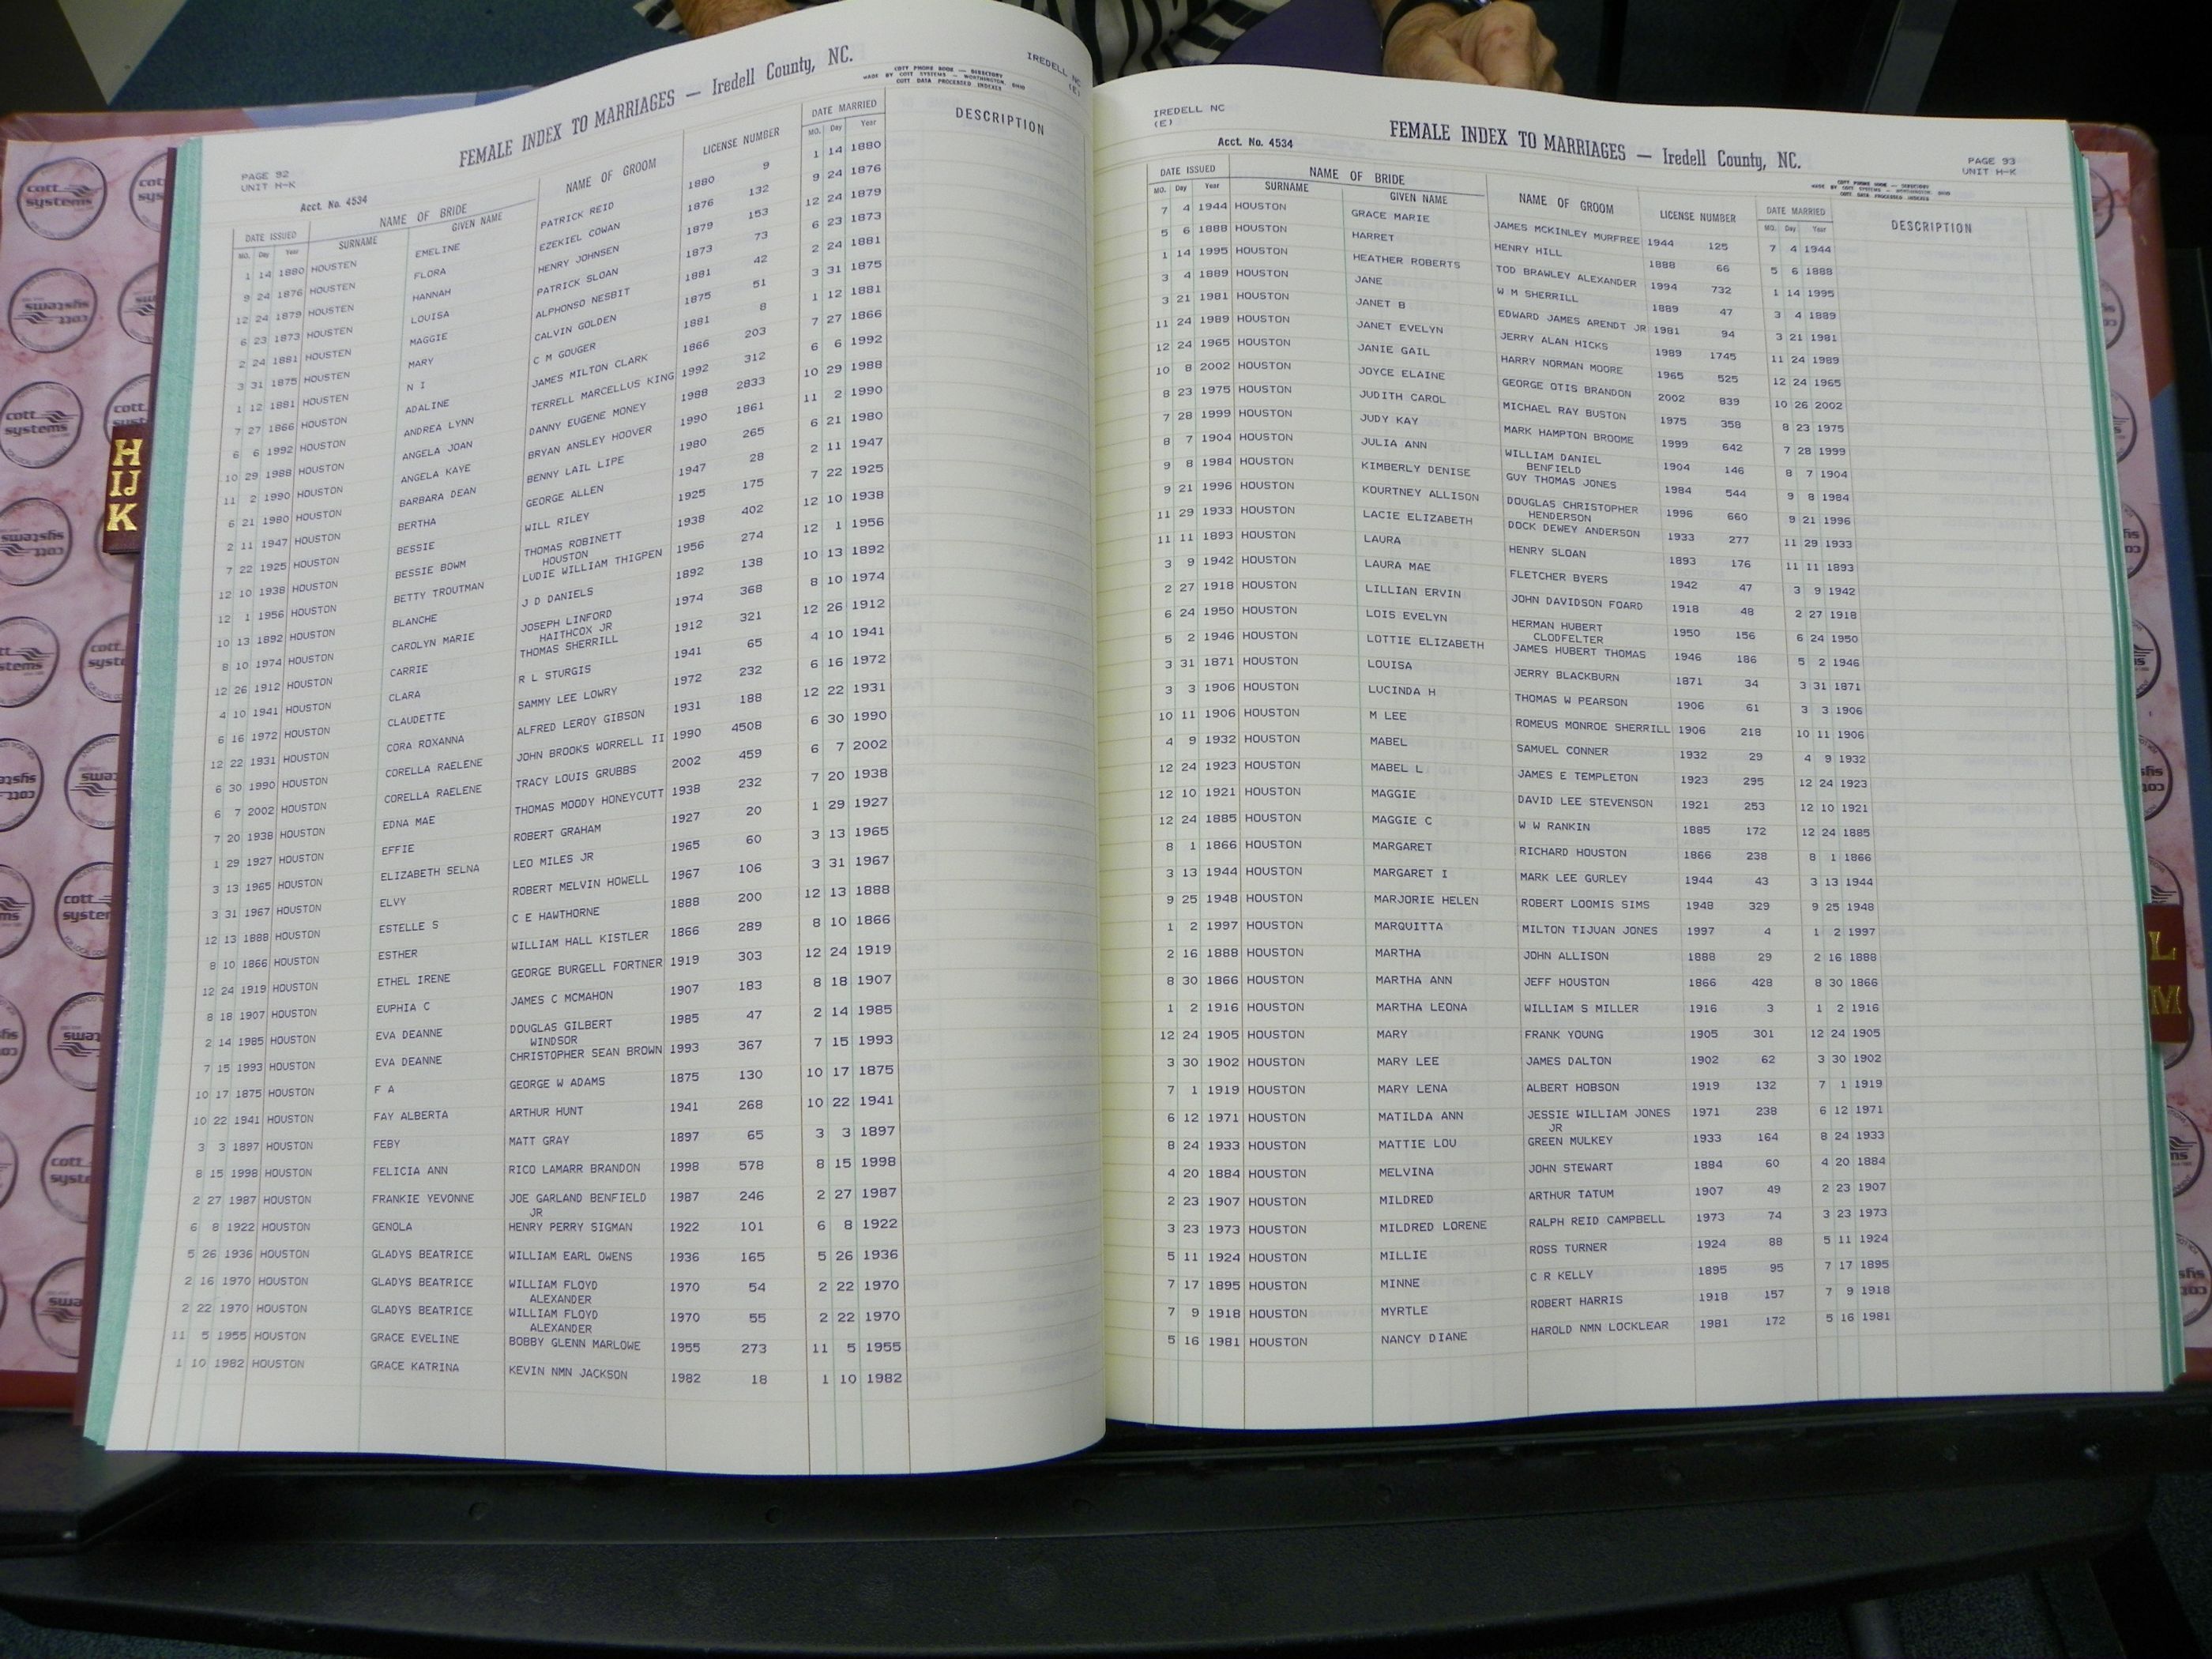 IREDELL NC
(E)
FEMALE INDEX TO MARRIAGES — Iredell County, NC.
COTT PHONE BOOK — DIRECTORY
MADE BY COTT SYSTEMS — WORTHINGTON, OHIO
COTT DATA PROCESSED INDEXES
PAGE 92
UNIT H-K
Acct. No. 4534
DATE ISSUED NAME OF BRIDE NAME OF GROOM LICENSE NUMBER DATE MARRIED DESCRIPTION
MO. Day Year SURNAME GIVEN NAME MO. Day Year
1 14 1880 HOUSTEN EMELINE PATRICK REID 1880 9 1 14 1880
9 24 1876 HOUSTEN FLORA EZEKIEL COWAN 1876 132 9 24 1876
12 24 1879 HOUSTEN HANNAH HENRY JOHNSEN 1879 153 12 24 1879
6 23 1873 HOUSTEN LOUISA PATRICK SLOAN 1873 73 6 23 1873
2 24 1881 HOUSTEN MAGGIE ALPHONSO NESBIT 1881 42 2 24 1881
3 31 1875 HOUSTEN MARY CALVIN GOLDEN 1875 51 3 31 1875
1 12 1881 HOUSTEN N I C M GOUGER 1881 8 1 12 1881
7 27 1866 HOUSTON ADALINE JAMES MILTON CLARK 1866 203 7 27 1866
6 6 1992 HOUSTON ANDREA LYNN TERRELL MARCELLUS KING 1992 312 6 6 1992
10 29 1988 HOUSTON ANGELA JOAN DANNY EUGENE MONEY 1988 2833 10 29 1988
11 2 1990 HOUSTON ANGELA KAYE BRYAN ANSLEY HOOVER 1990 1861 11 2 1990
6 21 1980 HOUSTON BARBARA DEAN BENNY LAIL LIPE 1980 265 6 21 1980
2 11 1947 HOUSTON BERTHA GEORGE ALLEN 1947 28 2 11 1947
7 22 1925 HOUSTON BESSIE WILL RILEY 1925 175 7 22 1925
12 10 1938 HOUSTON BESSIE BOWM THOMAS ROBINETT 1938 402 12 10 1938
HOUSTON
12 1 1956 HOUSTON BETTY TROUTMAN LUDIE WILLIAM THIGPEN 1956 274 12 1 1956
10 13 1892 HOUSTON BLANCHE J D DANIELS 1892 138 10 13 1892
8 10 1974 HOUSTON CAROLYN MARIE JOSEPH LINFORD 1974 368 8 10 1974
HAITHCOX JR
12 26 1912 HOUSTON CARRIE THOMAS SHERRILL 1912 321 12 26 1912
4 10 1941 HOUSTON CLARA R L STURGIS 1941 65 4 10 1941
6 16 1972 HOUSTON CLAUDETTE SAMMY LEE LOWRY 1972 232 6 16 1972
12 22 1931 HOUSTON CORA ROXANNA ALFRED LEROY GIBSON 1931 188 12 22 1931
6 30 1990 HOUSTON CORELLA RAELENE JOHN BROOKS WORRELL II 1990 4508 6 30 1990
6 7 2002 HOUSTON CORELLA RAELENE TRACY LOUIS GRUBBS 2002 459 6 7 2002
7 20 1938 HOUSTON EDNA MAE THOMAS MOODY HONEYCUTT 1938 232 7 20 1938
1 29 1927 HOUSTON EFFIE ROBERT GRAHAM 1927 20 1 29 1927
3 13 1965 HOUSTON ELIZABETH SELNA LEO MILES JR 1965 60 3 13 1965
3 31 1967 HOUSTON ELVY ROBERT MELVIN HOWELL 1967 106 3 31 1967
12 13 1888 HOUSTON ESTELLE S C E HAWTHORNE 1888 200 12 13 1888
8 10 1866 HOUSTON ESTHER WILLIAM HALL KISTLER 1866 289 8 10 1866
12 24 1919 HOUSTON ETHEL IRENE GEORGE BURGELL FORTNER 1919 303 12 24 1919
8 18 1907 HOUSTON EUPHIA C JAMES C MCMAHON 1907 183 8 18 1907
2 14 1985 HOUSTON EVA DEANNE DOUGLAS GILBERT 1985 47 2 14 1985
WINDSOR
7 15 1993 HOUSTON EVA DEANNE CHRISTOPHER SEAN BROWN 1993 367 7 15 1993
10 17 1875 HOUSTON F A GEORGE W ADAMS 1875 130 10 17 1875
10 22 1941 HOUSTON FAY ALBERTA ARTHUR HUNT 1941 268 10 22 1941
3 3 1897 HOUSTON FEBY MATT GRAY 1897 65 3 3 1897
8 15 1998 HOUSTON FELICIA ANN RICO LAMARR BRANDON 1998 578 8 15 1998
2 27 1987 HOUSTON FRANKIE YEVONNE JOE GARLAND BENFIELD 1987 246 2 27 1987
JR
6 8 1922 HOUSTON GENOLA HENRY PERRY SIGMAN 1922 101 6 8 1922
5 26 1936 HOUSTON GLADYS BEATRICE WILLIAM EARL OWENS 1936 165 5 26 1936
2 16 1970 HOUSTON GLADYS BEATRICE WILLIAM FLOYD 1970 54 2 22 1970
ALEXANDER
2 22 1970 HOUSTON GLADYS BEATRICE WILLIAM FLOYD 1970 55 2 22 1970
ALEXANDER
11 5 1955 HOUSTON GRACE EVELINE BOBBY GLENN MARLOWE 1955 273 11 5 1955
1 10 1982 HOUSTON GRACE KATRINA KEVIN NMN JACKSON 1982 18 1 10 1982
IREDELL NC
(E)
Acct. No. 4534
FEMALE INDEX TO MARRIAGES — Iredell County, NC.
PAGE 93
UNIT H-K
COTT PHONE BOOK — DIRECTORY
MADE BY COTT SYSTEMS — WORTHINGTON, OHIO
COTT DATA PROCESSED INDEXES
DATE ISSUED NAME OF BRIDE NAME OF GROOM LICENSE NUMBER DATE MARRIED DESCRIPTION
MO. Day Year SURNAME GIVEN NAME MO. Day Year
7 4 1944 HOUSTON GRACE MARIE JAMES MCKINLEY MURFREE 1944 125 7 4 1944
5 6 1888 HOUSTON HARRET HENRY HILL 1888 66 5 6 1888
1 14 1995 HOUSTON HEATHER ROBERTS TOD BRAWLEY ALEXANDER 1994 732 1 14 1995
3 4 1889 HOUSTON JANE W M SHERRILL 1889 47 3 4 1889
3 21 1981 HOUSTON JANET B EDWARD JAMES ARENDT JR 1981 94 3 21 1981
11 24 1989 HOUSTON JANET EVELYN JERRY ALAN HICKS 1989 1745 11 24 1989
12 24 1965 HOUSTON JANIE GAIL HARRY NORMAN MOORE 1965 525 12 24 1965
10 8 2002 HOUSTON JOYCE ELAINE GEORGE OTIS BRANDON 2002 839 10 26 2002
8 23 1975 HOUSTON JUDITH CAROL MICHAEL RAY BUSTON 1975 358 8 23 1975
7 28 1999 HOUSTON JUDY KAY MARK HAMPTON BROOME 1999 642 7 28 1999
8 7 1904 HOUSTON JULIA ANN WILLIAM DANIEL 1904 146 8 7 1904
BENFIELD
9 8 1984 HOUSTON KIMBERLY DENISE GUY THOMAS JONES 1984 544 9 8 1984
9 21 1996 HOUSTON KOURTNEY ALLISON DOUGLAS CHRISTOPHER 1996 660 9 21 1996
HENDERSON
11 29 1933 HOUSTON LACIE ELIZABETH DOCK DEWEY ANDERSON 1933 277 11 29 1933
11 11 1893 HOUSTON LAURA HENRY SLOAN 1893 176 11 11 1893
3 9 1942 HOUSTON LAURA MAE FLETCHER BYERS 1942 47 3 9 1942
2 27 1918 HOUSTON LILLIAN ERVIN JOHN DAVIDSON FOARD 1918 48 2 27 1918
6 24 1950 HOUSTON LOIS EVELYN HERMAN HUBERT 1950 156 6 24 1950
CLODFELTER
5 2 1946 HOUSTON LOTTIE ELIZABETH JAMES HUBERT THOMAS 1946 186 5 2 1946
3 31 1871 HOUSTON LOUISA JERRY BLACKBURN 1871 34 3 31 1871
3 3 1906 HOUSTON LUCINDA H THOMAS W PEARSON 1906 61 3 3 1906
10 11 1906 HOUSTON M LEE ROMEUS MONROE SHERRILL 1906 218 10 11 1906
4 9 1932 HOUSTON MABEL SAMUEL CONNER 1932 29 4 9 1932
12 24 1923 HOUSTON MABEL L JAMES E TEMPLETON 1923 295 12 24 1923
12 10 1921 HOUSTON MAGGIE DAVID LEE STEVENSON 1921 253 12 10 1921
12 24 1885 HOUSTON MAGGIE C W W RANKIN 1885 172 12 24 1885
8 1 1866 HOUSTON MARGARET RICHARD HOUSTON 1866 238 8 1 1866
3 13 1944 HOUSTON MARGARET I MARK LEE GURLEY 1944 43 3 13 1944
9 25 1948 HOUSTON MARJORIE HELEN ROBERT LOOMIS SIMS 1948 329 9 25 1948
1 2 1997 HOUSTON MARQUITTA MILTON TIJUAN JONES 1997 4 1 2 1997
2 16 1888 HOUSTON MARTHA JOHN ALLISON 1888 29 2 16 1888
8 30 1866 HOUSTON MARTHA ANN JEFF HOUSTON 1866 428 8 30 1866
1 2 1916 HOUSTON MARTHA LEONA WILLIAM S MILLER 1916 3 1 2 1916
12 24 1905 HOUSTON MARY FRANK YOUNG 1905 301 12 24 1905
3 30 1902 HOUSTON MARY LEE JAMES DALTON 1902 62 3 30 1902
7 1 1919 HOUSTON MARY LENA ALBERT HOBSON 1919 132 7 1 1919
6 12 1971 HOUSTON MATILDA ANN JESSIE WILLIAM JONES 1971 238 6 12 1971
JR
8 24 1933 HOUSTON MATTIE LOU GREEN MULKEY 1933 164 8 24 1933
4 20 1884 HOUSTON MELVINA JOHN STEWART 1884 60 4 20 1884
2 23 1907 HOUSTON MILDRED ARTHUR TATUM 1907 49 2 23 1907
3 23 1973 HOUSTON MILDRED LORENE RALPH REID CAMPBELL 1973 74 3 23 1973
5 11 1924 HOUSTON MILLIE ROSS TURNER 1924 88 5 11 1924
7 17 1895 HOUSTON MINNE C R KELLY 1895 95 7 17 1895
7 9 1918 HOUSTON MYRTLE ROBERT HARRIS 1918 157 7 9 1918
5 16 1981 HOUSTON NANCY DIANE HAROLD NMN LOCKLEAR 1981 172 5 16 1981
H
IJ
K
L
M
cott systems